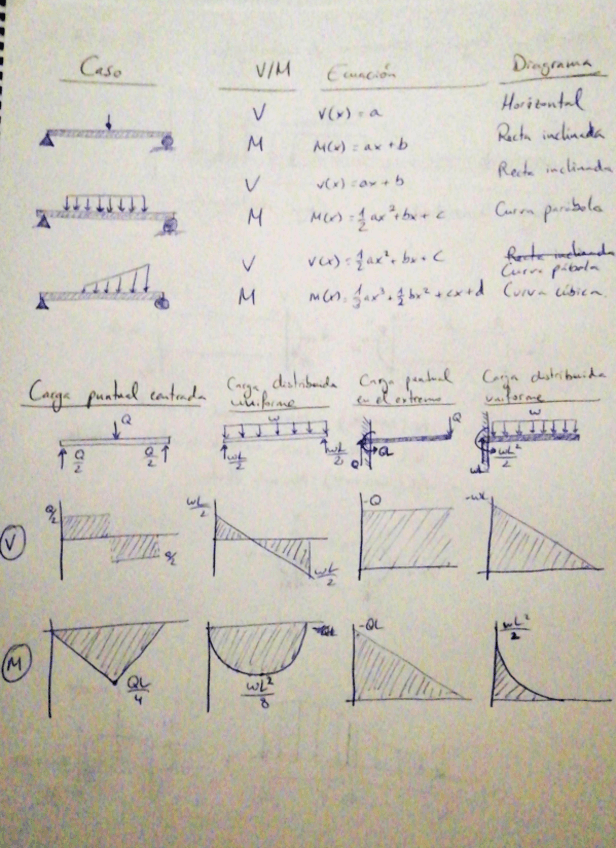 Caso V/M Ecuación Diagrama
V V(x) = a Horizontal
M M(x) = ax + b Recta inclinada
V V(x) = ax + b Recta inclinada
M M(x) = 1/2 ax² + bx + c Curva parábola
V V(x) = 1/2 ax² + bx + C Recta inclinada
Curva pábola
M M(x) = 1/3 ax³ + 1/2 bx² + cx + d Curva cúbica
Carga puntual centrada
Carga distribuida
uniforme
Carga puntual
en el extremo
Carga distribuida
uniforme
Q w Q w
Q/2 Q/2 wL/2 wL/2 Q QL wL wL²/2
V
Q/2 Q/2 wL/2 wL/2 -Q -wL
M
QL/4 wL²/8 -QL wL²/2